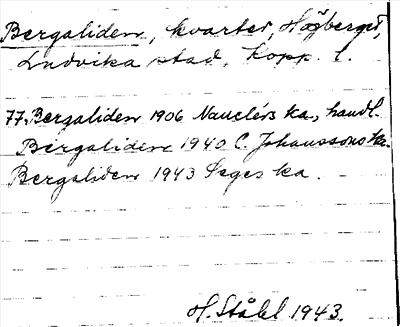 Bergaliden, kvarter, Högberget,
Ludvika stad, Kopp. l.
77. Bergaliden 1906 Nauclérs ka, handl.
Bergaliden 1940 C. Johanssons ka.
Bergaliden 1943 Seges ka.
H. Ståhl 1943.